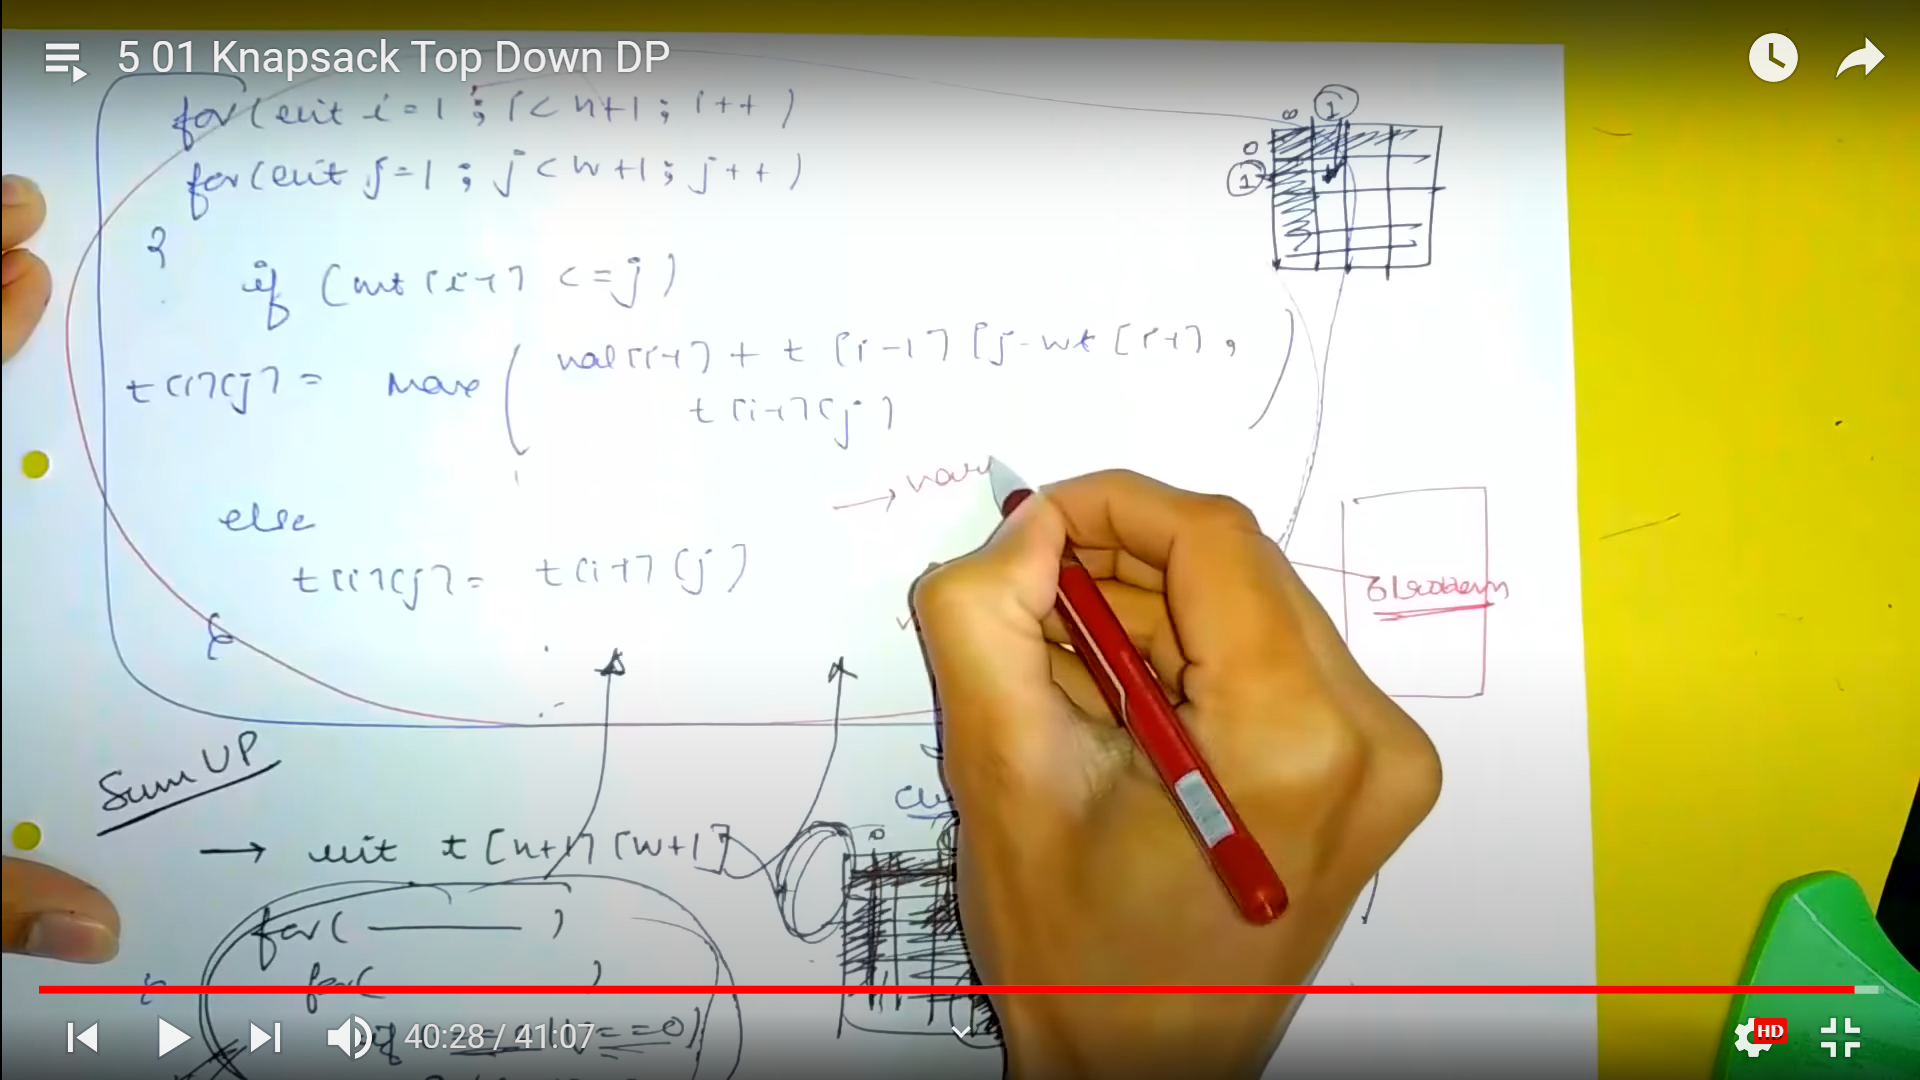 5 01 Knapsack Top Down DP
for(int i=1 ; i<n+1 ; i++ )
for(int j=1 ; j<w+1 ; j++ )
{
if (wt[i-1] <=j)
t[i][j] = Max ( val[i-1] + t [i-1] [j-wt[i-1] ,
t[i-1][j] )
else
t[i][j] = t[i-1][j]
}
0
1
0
1
6 problem
Sum UP
→ int t [n+1] [w+1]
for( )
for( )
if ==0)
40:28 / 41:07
HD